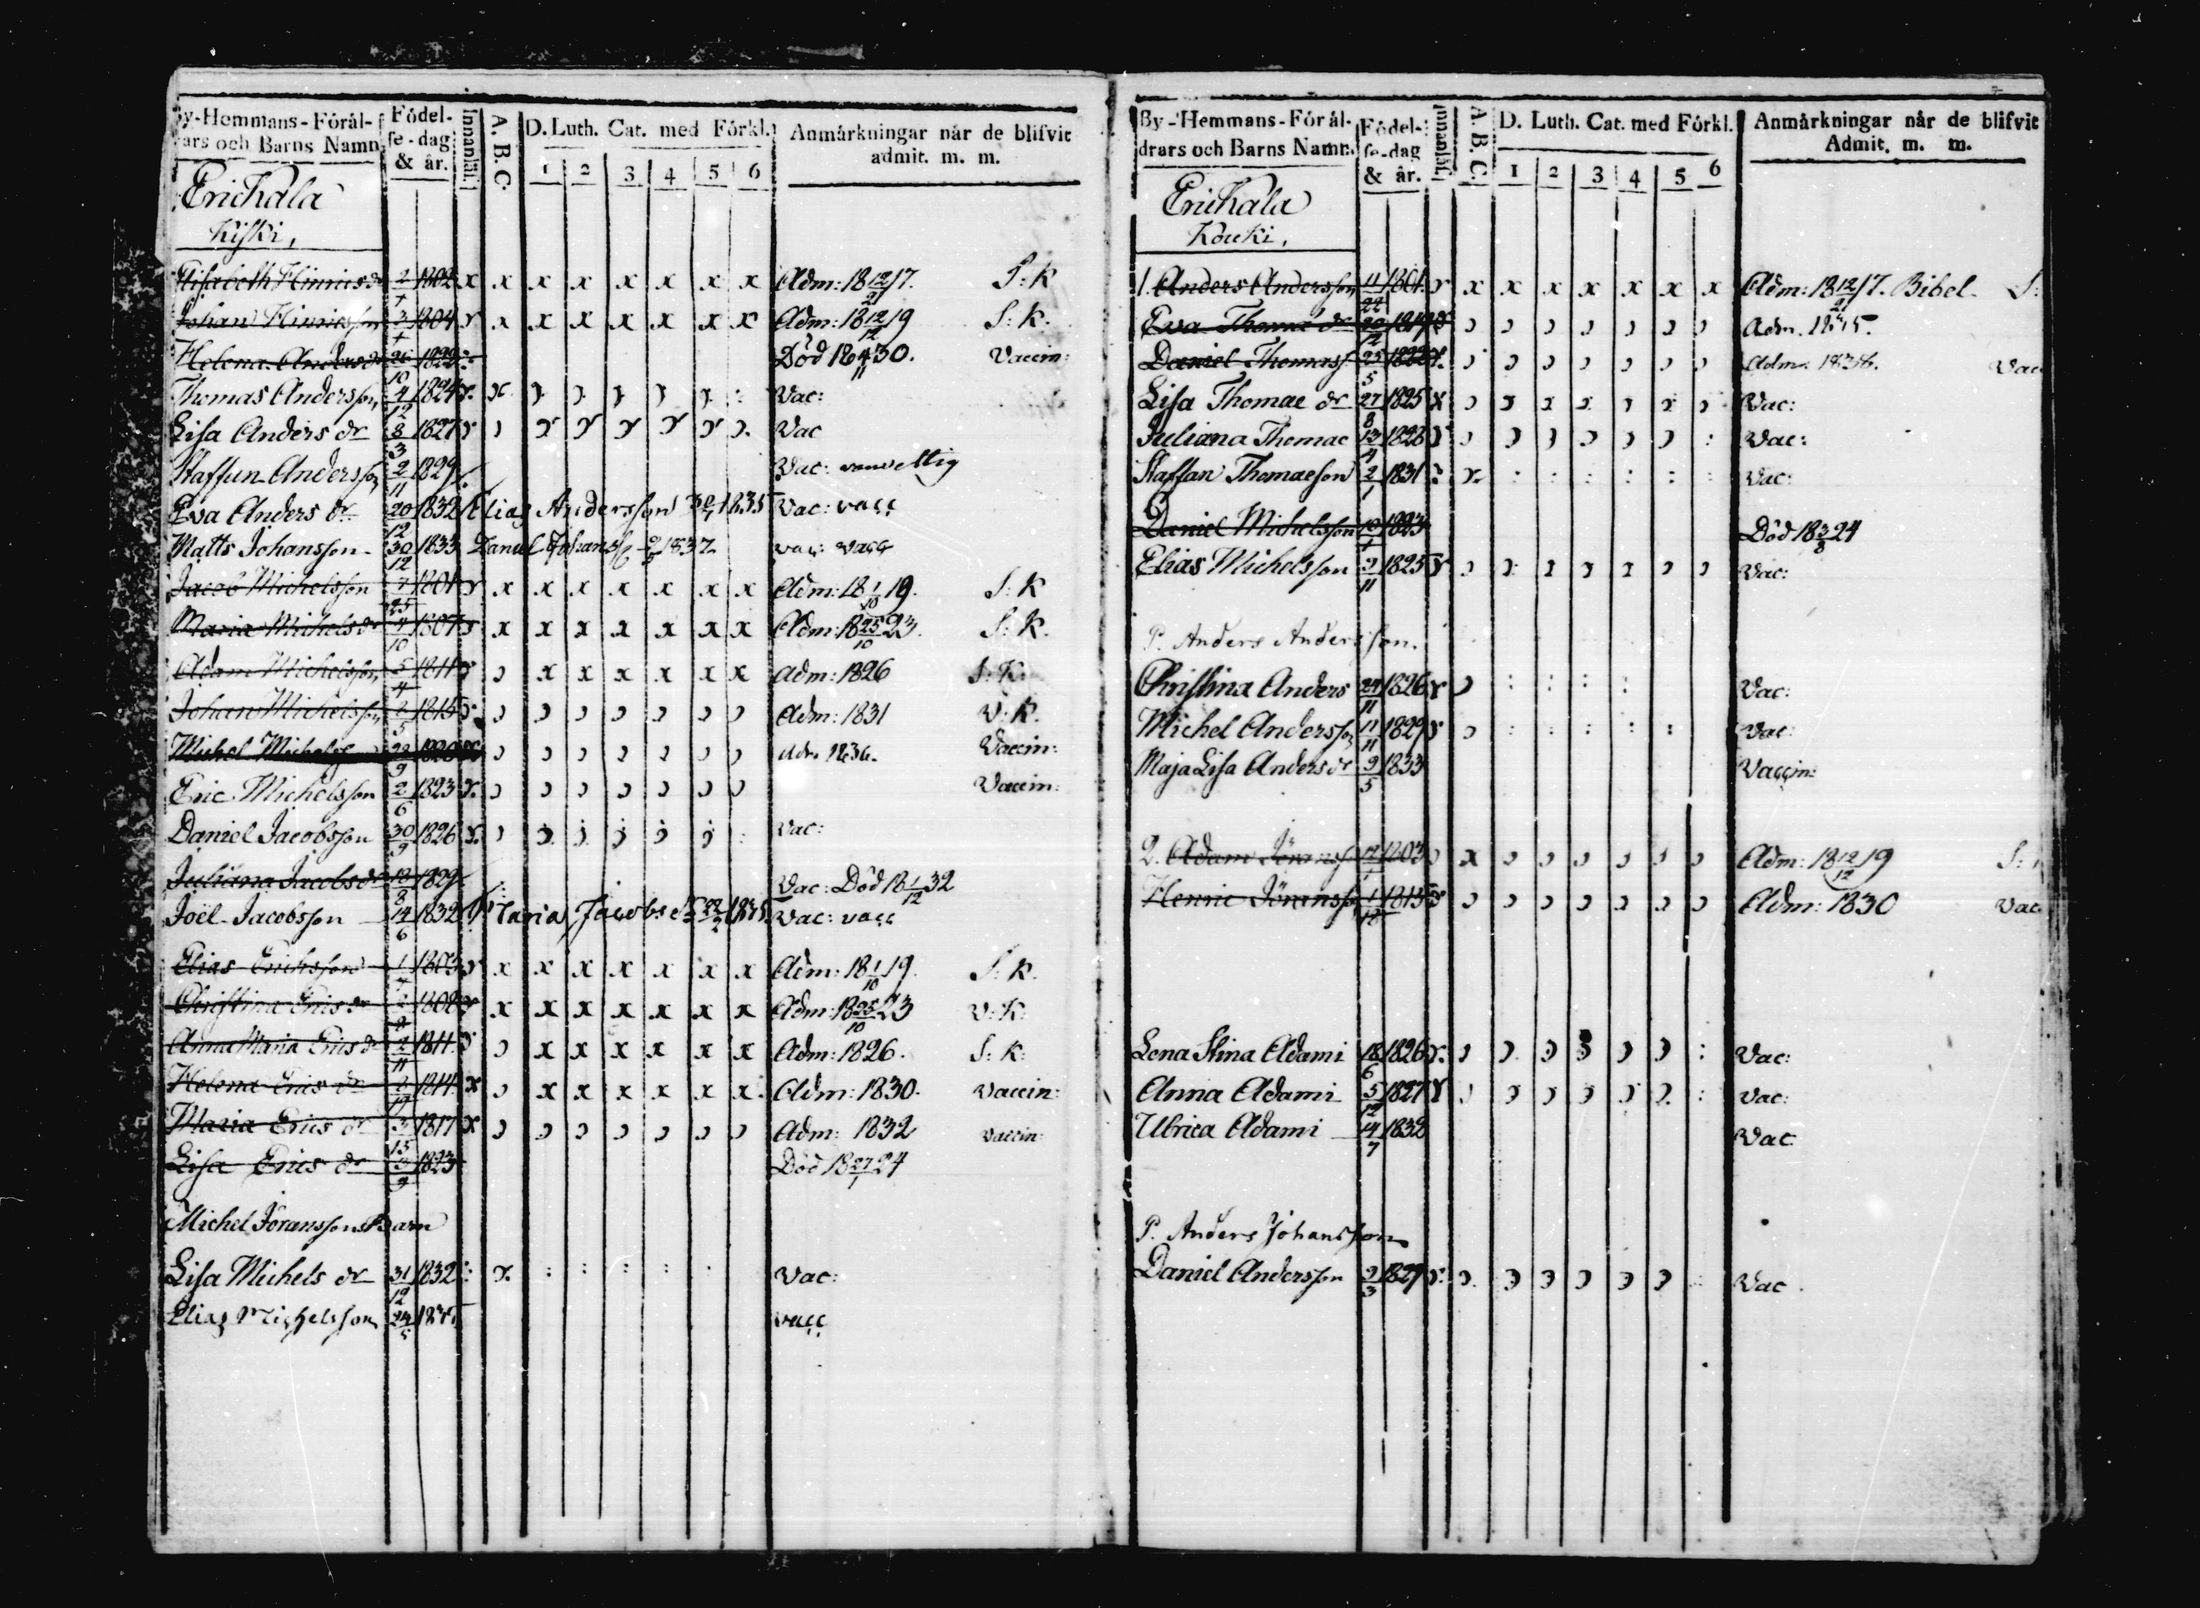 By-Hemmans-Förål-
drars och Barns Namn.
Födel-
se-dag
& år.
Innanläs.
A. B. C.
D. Luth. Cat. med Förkl.
1 2 3 4 5 6
Anmärkningar når de blifvit
admit. m. m.
Erickala
Kiski,
Elisabeth Hinrics dr 2/7 1802 x x x x x x x x Adm: 18 12/21 17. S: K
Johan Hinricsson 3/7 1804 x x x x x x x x Adm: 18 12/12 19 S: K.
Helena Anders dr 26/10 1822 Död 18 4/11 30. Vaccin:
Thomas Andersson 4/12 1824 Vac:
Lisa Anders dr 8/3 1827 Vac
Staffan Andersson 2/11 1829 Vac: vanvettig
Eva Anders dr 20/12 1832 Elias Andersson 30/7 1835 Vac: vacc
Matts Johansson 30/12 1833 Daniel Johanss 1837 vac: vacc
Jacob Michelsson 7/25 1801 x x x x x x x x Adm: 18 1/10 19. S: K
Maria Michels dr 4/10 1807 x x x x x x x x Adm: 18 25/10 23. S: K.
Adam Michelsson 5/4 1811 x x x x x x Adm: 1826 S: K.
Johan Michelsson 2/5 1815 Adm: 1831 V: K.
Michel Michelss 22/9 1820 Adm. 1836. Vaccin:
Eric Michelsson 2/6 1823 Vaccin:
Daniel Jacobsson 30/9 1826 Vac:
Juliana Jacobs dr 18/8 1829 Vac: Död 18 1/12 32
Joël Jacobsson 14/6 1832 Maria Jacobs dr 22/2 1835 Vac: vacc
Elias Ericksson 1/7 1803 x x x x x x x x Adm: 18 1/10 19. S: K.
Christina Erics dr 1808 x x x x x x x x Adm: 18 25/10 23 V: K:
Anna Maria Erics dr 2/11 1811 x x x x x x Adm: 1826. S: K:
Helena Erics dr 1814 x x x x x x x Adm: 1830. Vaccin:
Maria Erics dr 3/15 1817 x Adm: 1832 Vaccin:
Lisa Erics dr 3/9 1823 Död 18 27/1 24
Michel Jöransson Barn
Lisa Michels dr 31/12 1832 Vac:
Elias Michelsson 24/5 vacc
By-Hemmans-Förål-
drars och Barns Namn.
Födel-
se-dag
& år.
Innanläs.
A. B. C.
D. Luth. Cat. med Förkl.
1 2 3 4 5 6
Anmärkningar når de blifvit
Admit. m. m.
Erickala
Kouki,
1. Anders Andersson 11/22 1801 x x x x x x x x Adm: 18 12/21 17. Bibel. S:
Eva Thomæ dr 20/12 1819 Adm. 1835.
Daniel Thomass 25/5 1822 Adm. 1838. Vac
Lisa Thomae dr 27/8 1825 x Vac:
Juliana Thomae 13/4 1828 Vac:
Staffan Thomaeson 2/1 1831 Vac:
Daniel Michelsson 10/1 1823 Död 18 3/8 24
Elias Michelsson 9/11 1825 Vac:
P. Anders Andersson.
Christina Anders 24/11 1826 Vac:
Michel Andersson 17/11 1829 Vac:
Maja Lisa Anders dr 9/5 1833 Vaccin:
2. Adam Jöranss 17/1 1803 x Adm: 18 12/12 19 S:
Henric Jöranss 1/10 1813 Adm: 1830 Vac
Lena Stina Adami 18/6 1826 Vac:
Anna Adami 5/12 1827 Vac:
Ulrica Adami 14/7 1832 Vac
P. Anders Johansson
Daniel Andersson 9/3 1829 Vac.